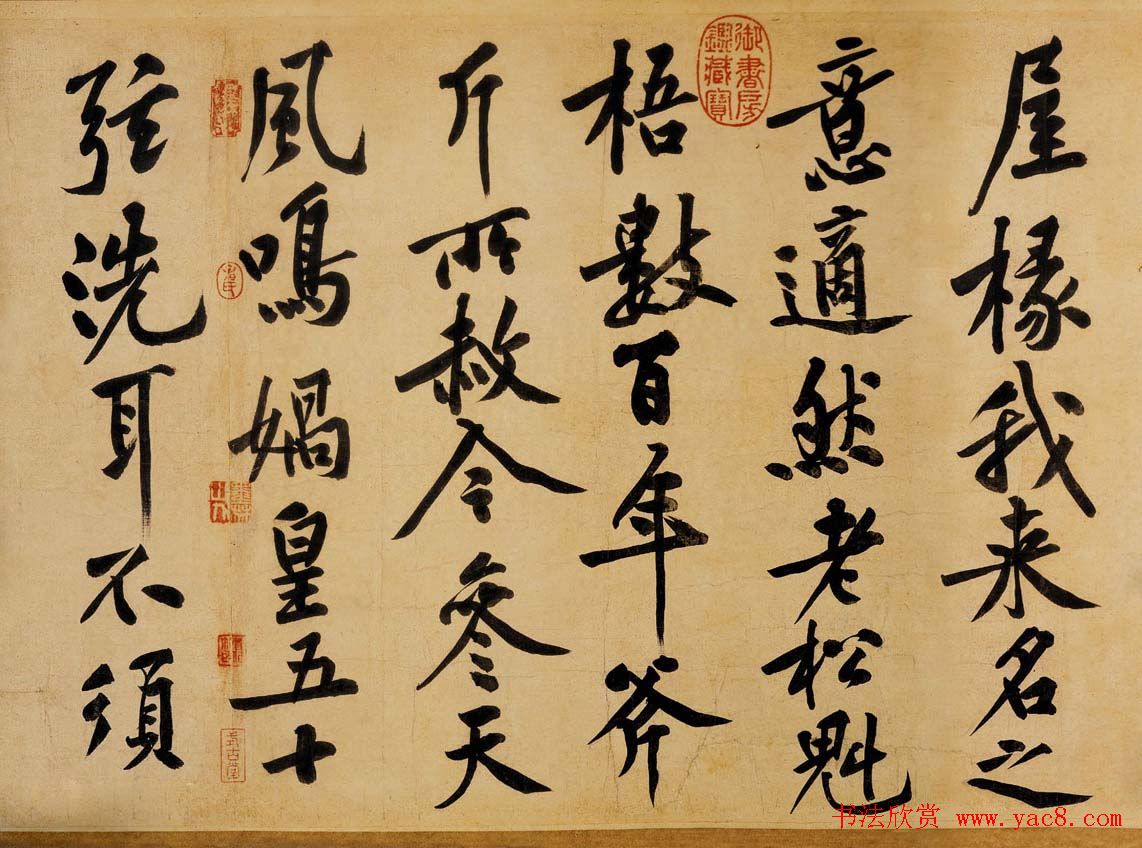 屋椽我来名之
意適然老松魁
梧數百年斧
斤所赦今參天
風鳴媧皇五十
弦洗耳不須
御書房
鑑藏寶
式古堂
书法欣赏 www.yac8.com